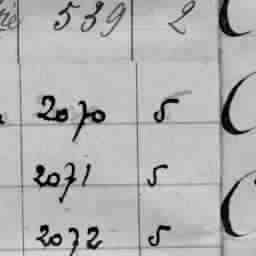 539 2
2070 5
2071 5
2072 5